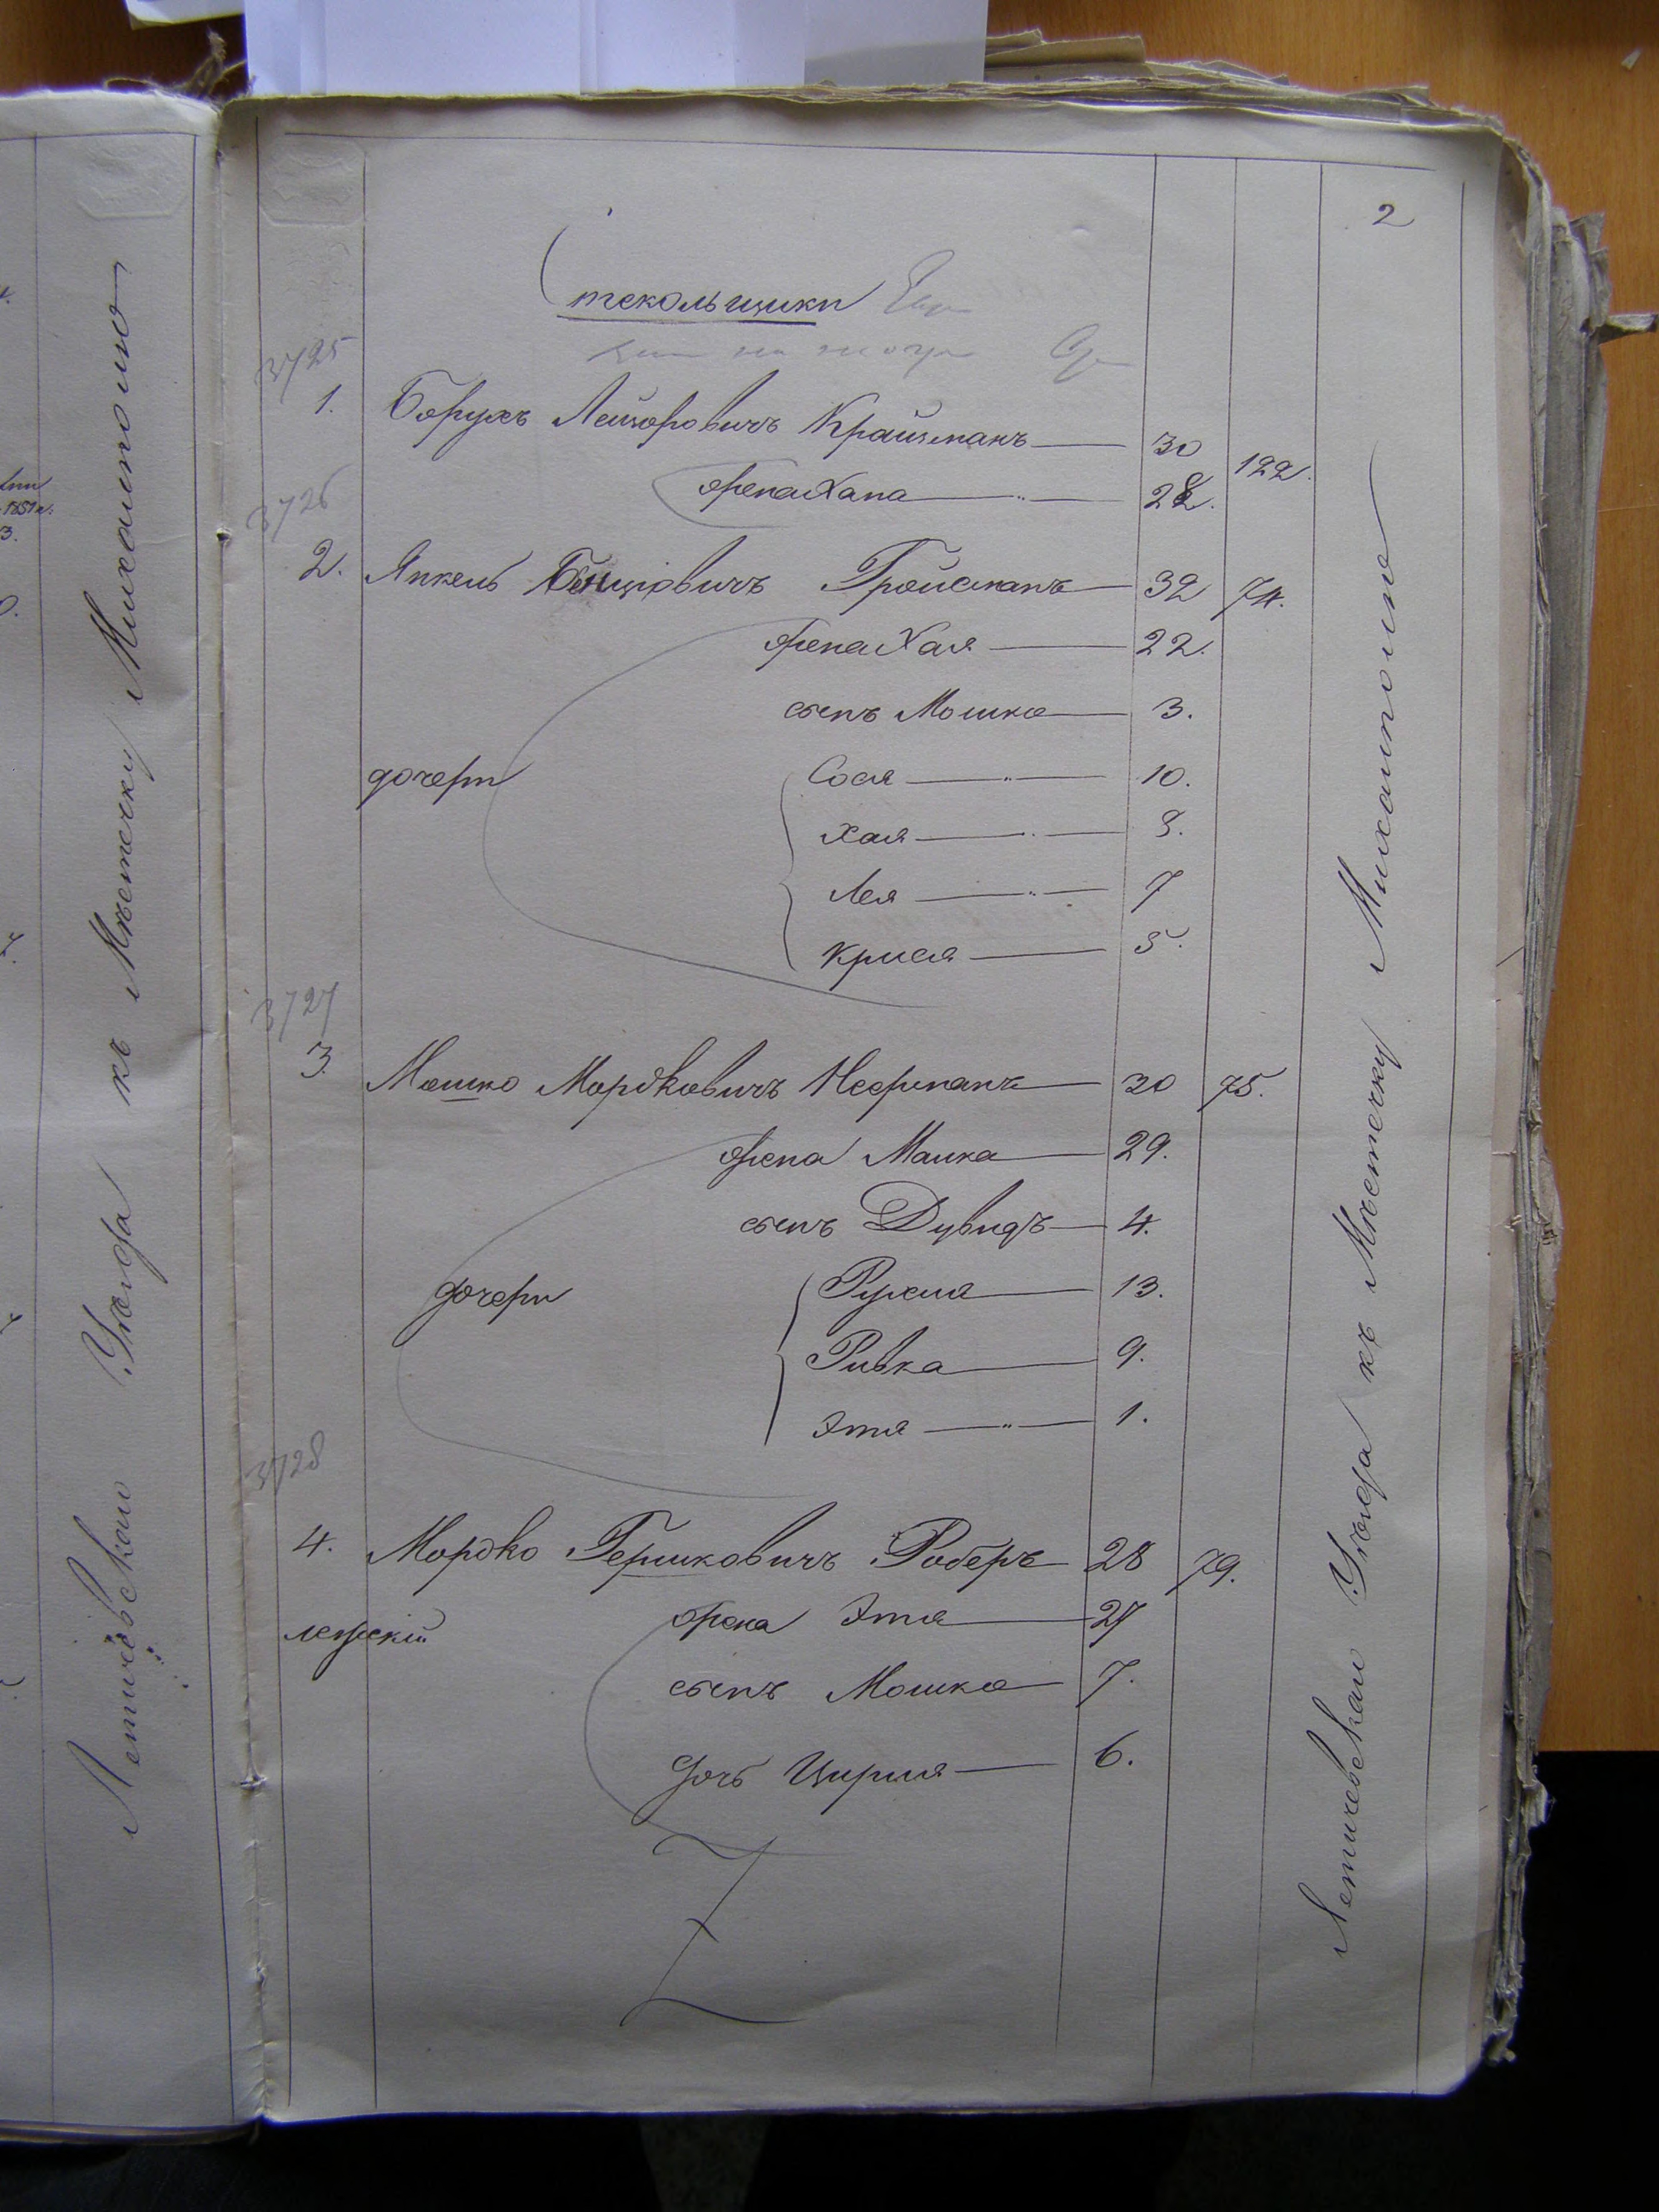 2
Стекольщики
3725
1. Борухъ Лейзоровичъ Крайзманъ 30 122.
жена Хана 28.
3726
2. Янкель Бенціовичъ Гройсманъ 32 74.
жена Хая 22.
сынъ Мошко 3.
дочери Сося 10.
Хая 8.
Лея 7
Крися 5.
3727
3. Мошко Мордковичъ 30 75.
жена Малка 29.
сынъ Дувидъ 4.
дочери Рухля 13.
Ривка 9.
Этя 1.
3728
4. Мордко Гершковичъ Роберъ 28 79.
жена Этя 27
сынъ Мошко 7.
дочь Цирля 6.
Летичевскаго Уѣзда къ Мѣстечку Михалполю
Летичевскаго Уѣзда къ Мѣстечку Михалполю